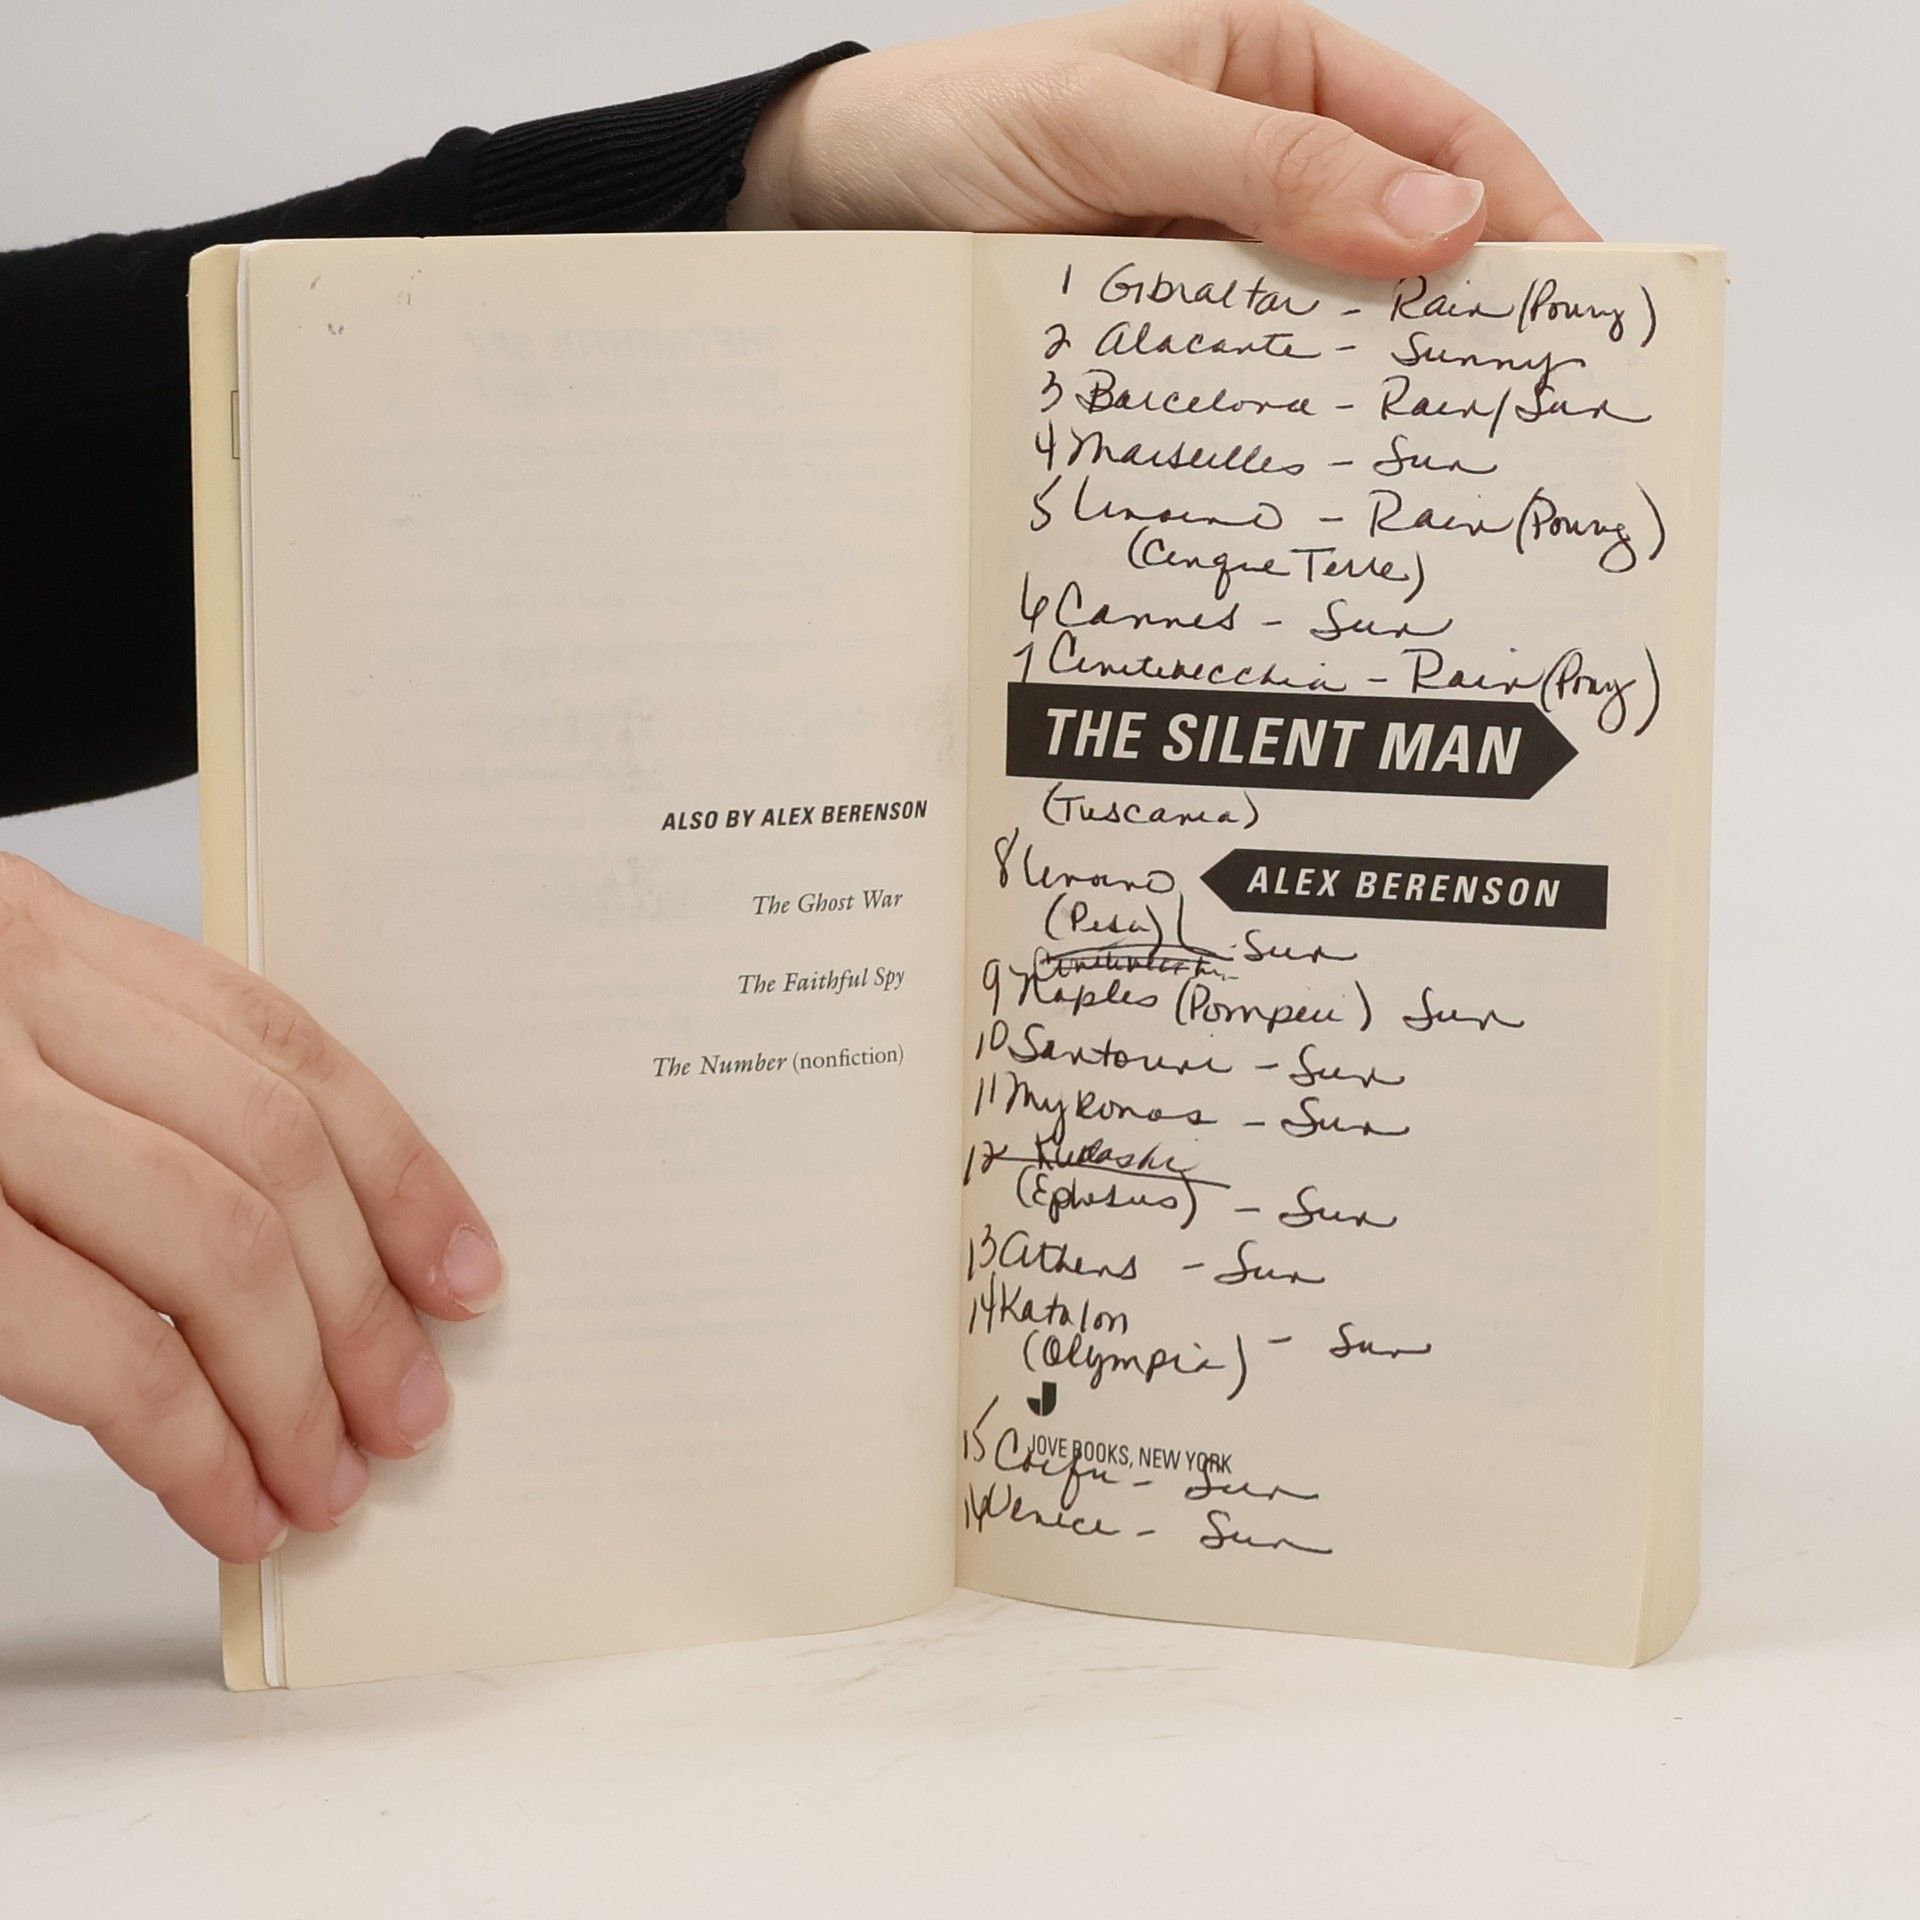 ALSO BY ALEX BERENSON
The Ghost War
The Faithful Spy
The Number (nonfiction)
1 Gibraltar – Rain (Pourng)
2 Alacante – Sunny
3 Barcelona – Rain/Sun
4 Marseilles – Sun
5 – Rain (Pourng)
(Cinque Terre)
6 Cannes – Sun
7 – Rain
THE SILENT MAN
(Tuscania)
8
ALEX BERENSON
(Pisa) - Sun
9 Naples (Pompeii) Sun
10 Santorini – Sun
11 Mykonos – Sun
12
(Ephesus) – Sun
13 Athens – Sun
14 Katalon
(Olympia) – Sun
JOVE BOOKS, NEW YORK
15 Corfu – Sun
16 Venice – Sun